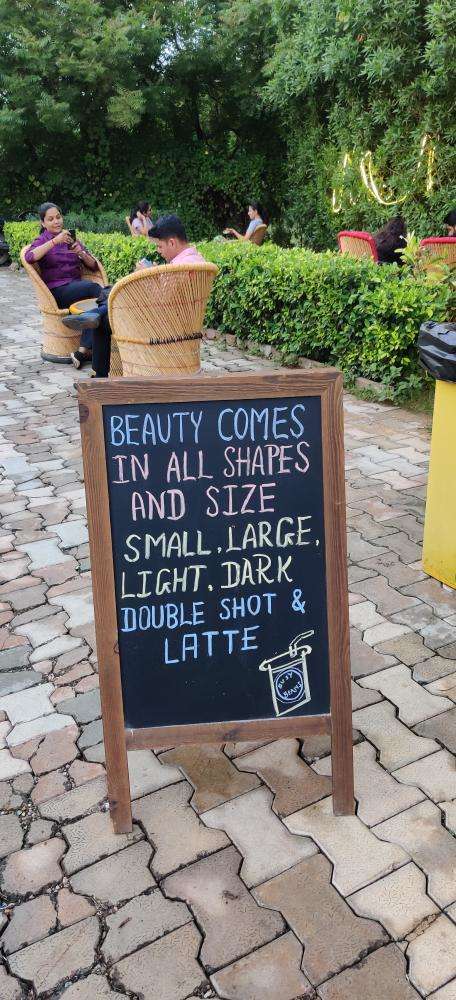 BEAUTY COMES
IN ALL SHAPES
AND SIZE
SMALL, LARGE,
LIGHT, DARK
DOUBLE SHOT &
LATTE
BUSY